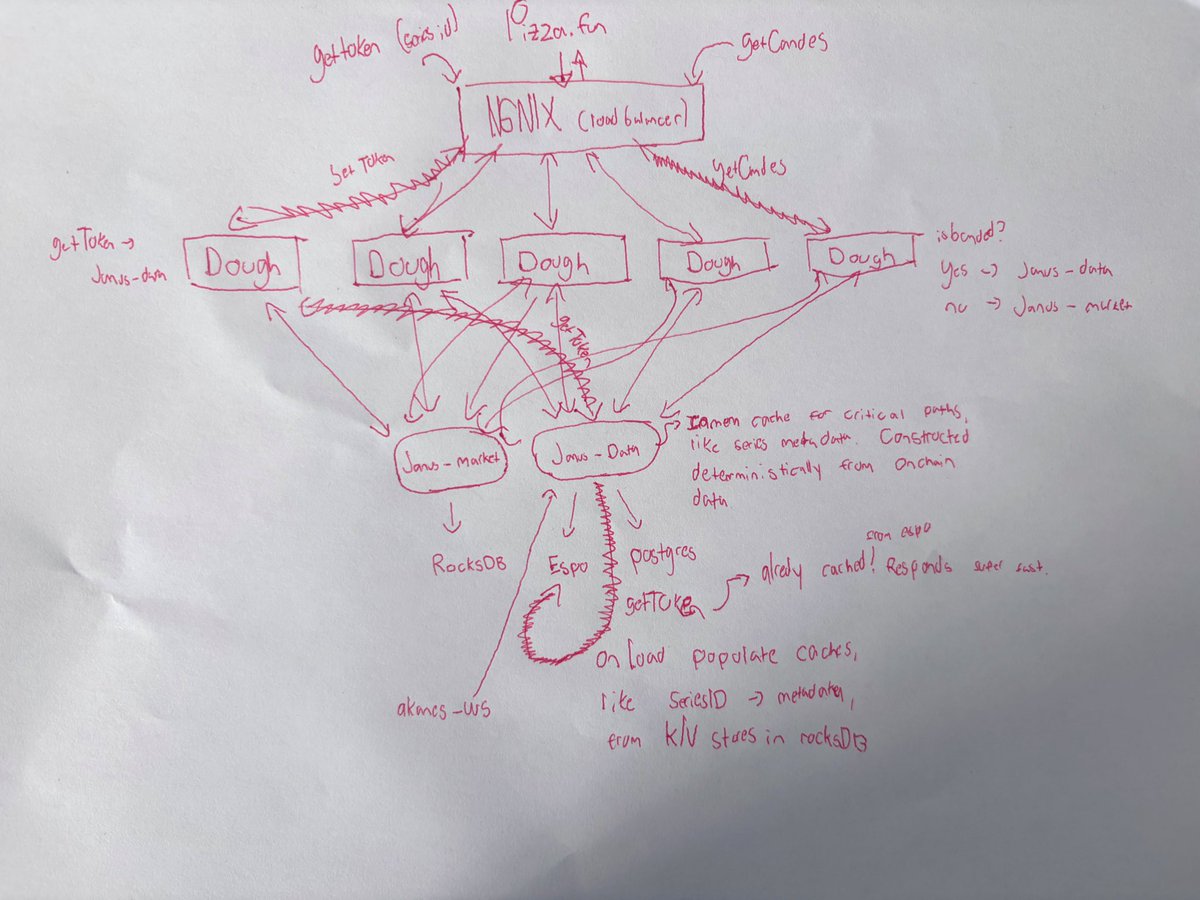 getToken (series id)
Pizza.fun
getCandes
NGNIX (load balancer)
getToken
getCmdes
getToken →
Janus-data
Dough
Dough
Dough
Dough
Dough
isbonded?
Yes → Janus-data
no → Janus-market
getToken
Janus-market
Janus-Data
cache for critical paths,
like series metadata. Constructed
deterministically from onchain
data
RocksDB
Espo
postgres
getToken
already cached! Responds super fast.
from espo
on load populate caches,
like SeriesID → metadata,
from K/V stores in rocksDB
akanes-ws